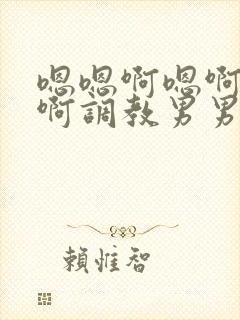 嗯嗯啊嗯啊
啊調教男男
賴惟智